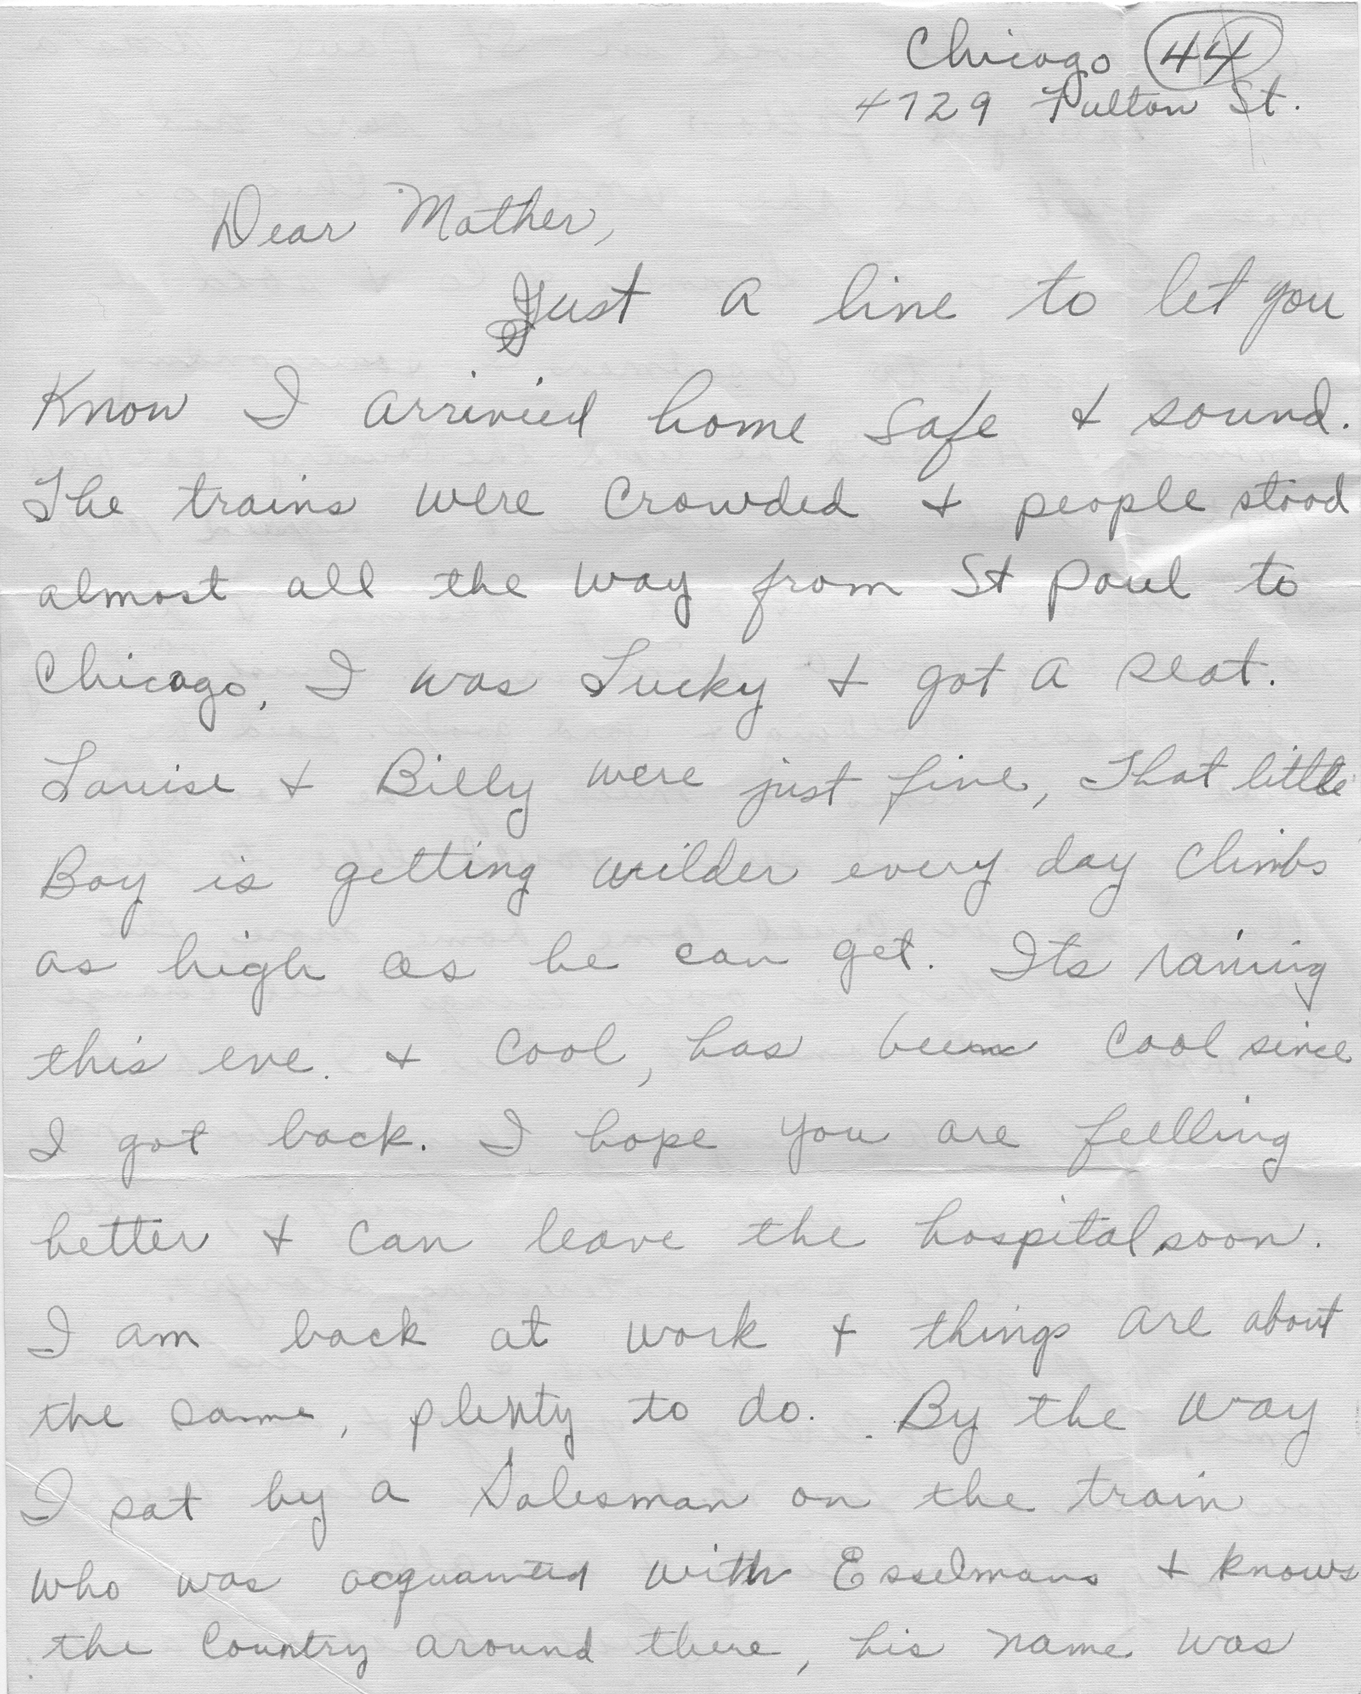 Chicago 44
4729 Fulton St.
Dear Mother,
Just a line to let you
Know I arrivied home safe & sound.
The trains were Crowded & people stood
almost all the way from St Paul to
Chicago, I was Lucky & got a seat.
Louise & Billy were just fine, That little
Boy is getting wilder every day Climbs
as high as he can get. Its raining
this eve. & Cool, has been Cool since
I got back. I hope you are feelling
better & Can leave the hospital soon.
I am back at work & things are about
the same, plenty to do. By the way
I sat by a Salesman on the train
who was acquainted with Esselmans & knows
the Country around there, his name was